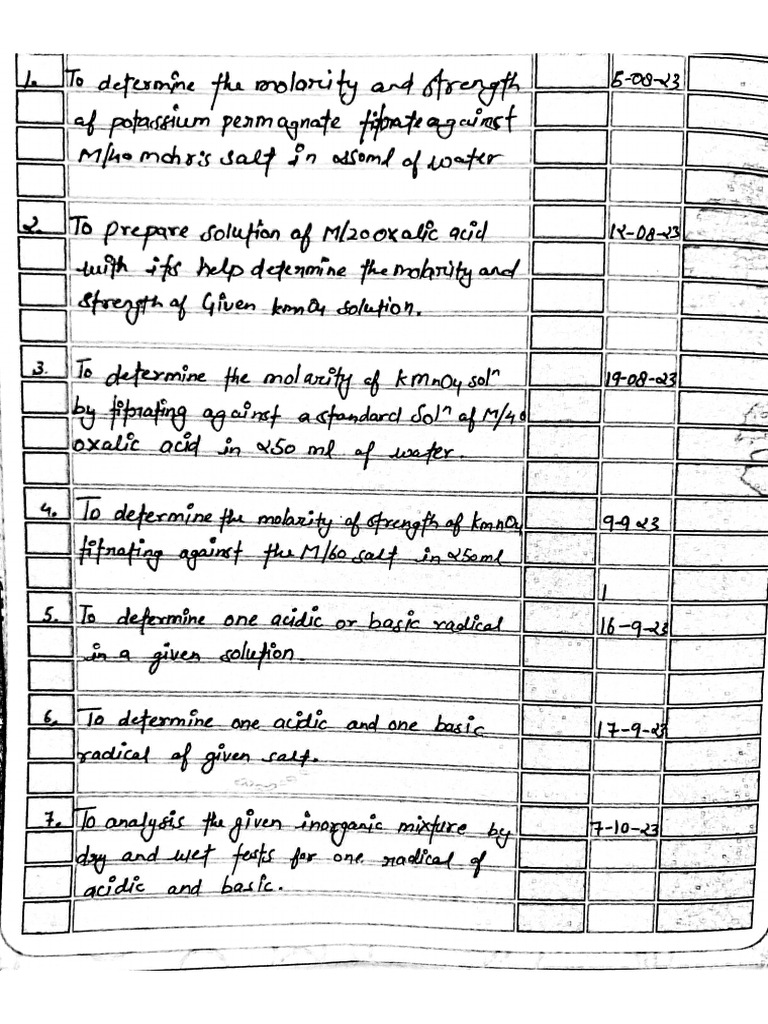 1. To determine the molarity and strength 5-08-23
of potassium permagnate titrate against
M/40 mohr's salt in 250ml of water
2. To prepare solution of M/20 oxalic acid 12-08-23
with its help determine the molarity and
strength of Given kmnO4 solution.
3. To determine the molarity of KMnO4 solⁿ 19-08-23
by titrating against a standard Solⁿ of M/40
oxalic acid in 250 ml of water.
4. To determine the molarity of strength of kmnO4 9-9-23
titrating against the M/60 salt in 250ml
5. To determine one acidic or basic radical 16-9-23
in a given solution
6. To determine one acidic and one basic 17-9-23
radical of given salt.
7. To analysis the given inorganic mixture by 7-10-23
dry and wet tests for one radical of
acidic and basic.